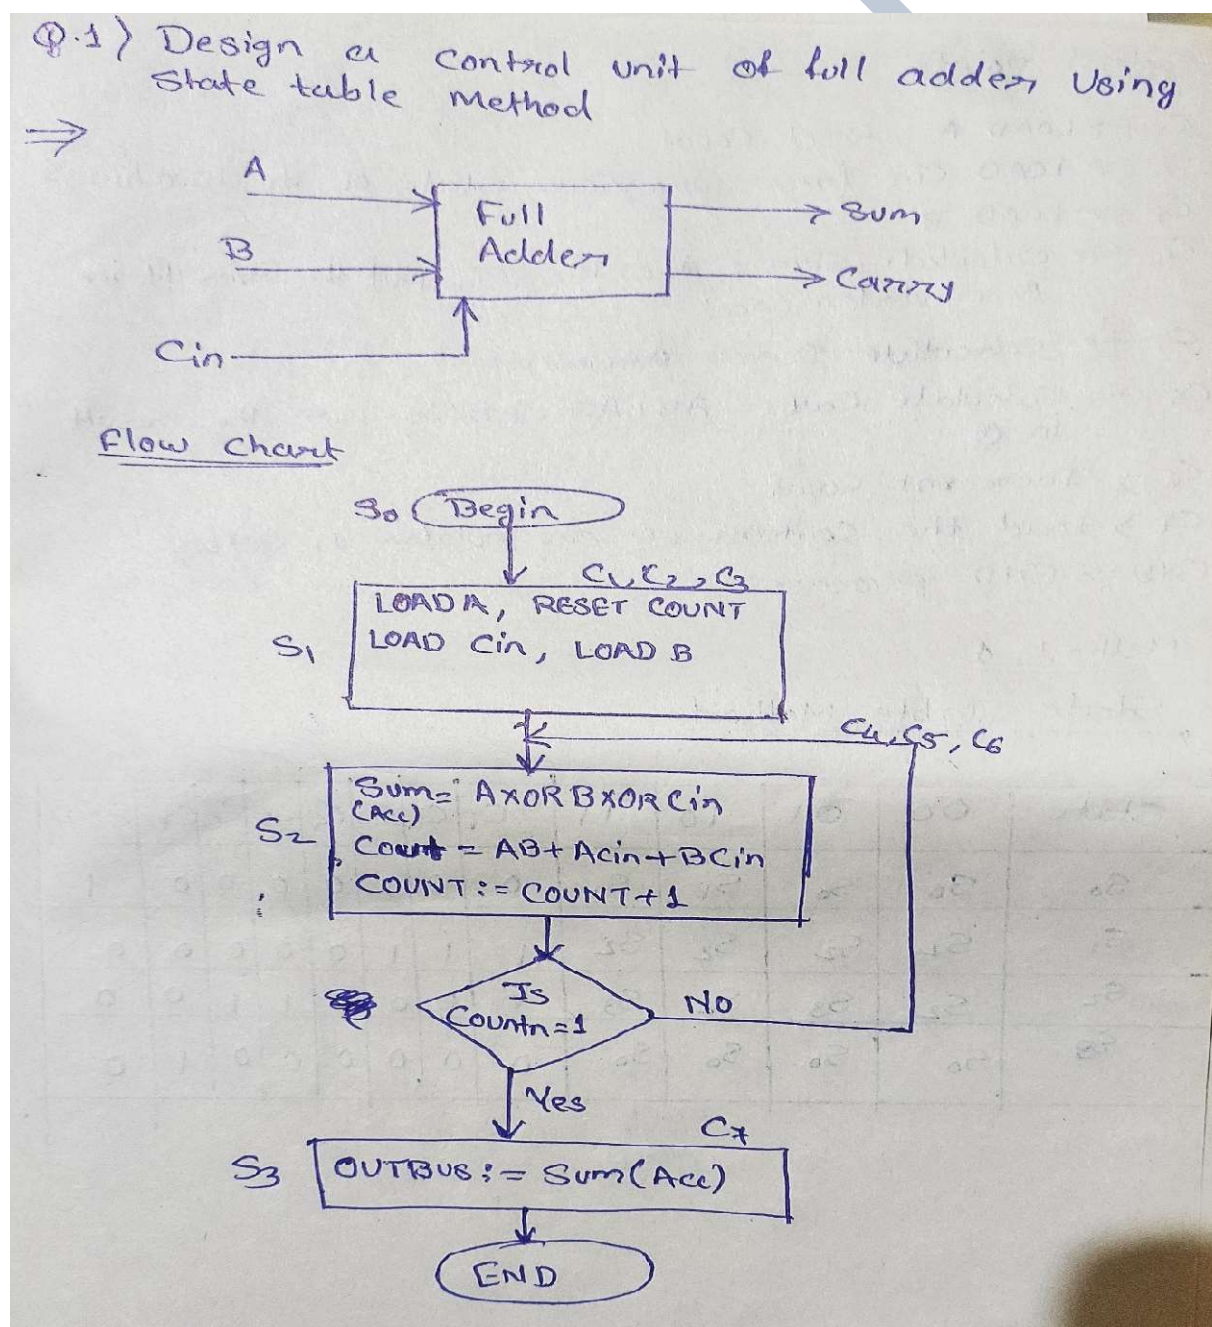 Q.1) Design a control unit of full adder Using
State table Method
⇒
A
B
Cin
Full
Adder
Sum
Carry
Flow Chart
S0 Begin
C1, C2, C3
LOAD A, RESET COUNT
S1 LOAD Cin, LOAD B
C4, C5, C6
Sum = A XOR B XOR Cin
(Acc)
S2
Cout = AB + ACin + BCin
COUNT := COUNT + 1
Is
Countn = 1
NO
Yes
C7
S3 OUTBUS := Sum (Acc)
END